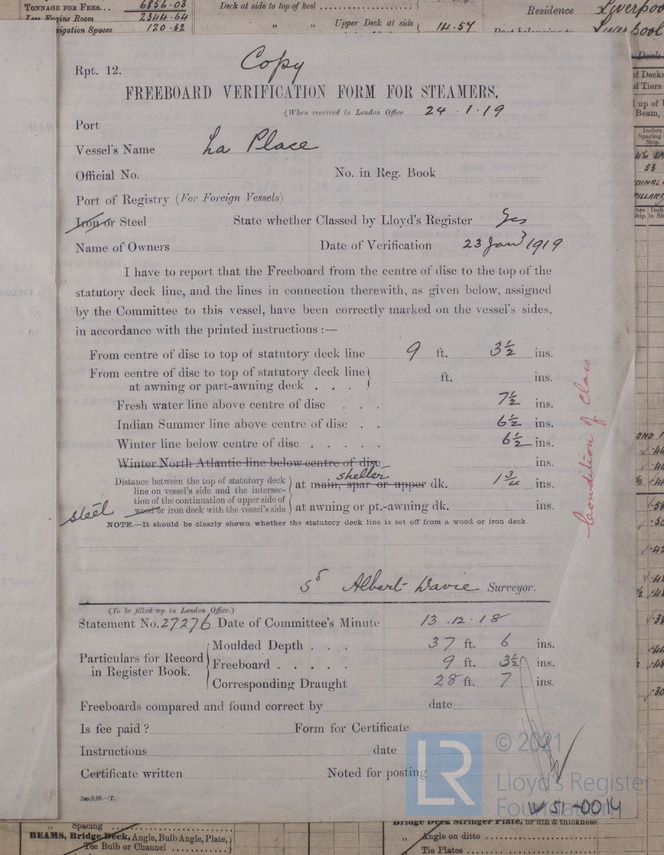 TONNAGE FOR FEES... 6856.03
Less Engine Room 2344.64
igation Spaces 120.32
Deck at side to top of keel
" " Upper Deck at side 14.57
Residence Liverpoo
Copy
Rpt. 12.
FREEBOARD VERIFICATION FORM FOR STEAMERS.
(When received in London Office 24.1.19
Port
Vessel's Name La Place
Official No. No. in Reg. Book
Port of Registry (For Foreign Vessels)
Iron or Steel State whether Classed by Lloyd's Register Yes
Name of Owners Date of Verification 23 Jany 1919
I have to report that the Freeboard from the centre of disc to the top of the
statutory deck line, and the lines in connection therewith, as given below, assigned
by the Committee to this vessel, have been correctly marked on the vessel's sides,
in accordance with the printed instructions:—
From centre of disc to top of statutory deck line 9 ft. 3½ ins.
From centre of disc to top of statutory deck line
at awning or part-awning deck . . . ft. ins.
Fresh water line above centre of disc . . . 7½ ins.
Indian Summer line above centre of disc . . 6½ ins.
Winter line below centre of disc . . . . . 6½ ins.
Winter North Atlantic line below centre of disc ins.
Distance between the top of statutory deck
line on vessel's side and the intersec-
tion of the continuation of upper side of
wood or iron deck with the vessel's side
shelter
at main, spar or upper dk. 1¾ ins.
at awning or pt.-awning dk. ins.
steel
NOTE.—It should be clearly shown whether the statutory deck line is set off from a wood or iron deck
Condition of Class
Sd Albert Davie Surveyor.
(To be filled up in London Office.)
Statement No. 27276 Date of Committee's Minute 13.12.18
Particulars for Record
in Register Book.
Moulded Depth . . . 37 ft. 6 ins.
Freeboard . . . . . 9 ft. 3½ ins.
Corresponding Draught 28 ft. 7 ins.
Freeboards compared and found correct by date
Is fee paid? Form for Certificate
Instructions date
Certificate written Noted for posting
LR
© 2021
Lloyd's Register
Foundation
W51-0014
Spacing
BEAMS, Bridge Deck, Angle, Bulb Angle, Plate,
Tee Bulb or Channel
Bridge Deck Stringer Plate, br'dth & thickness
" Angle on ditto
" Tie Plates